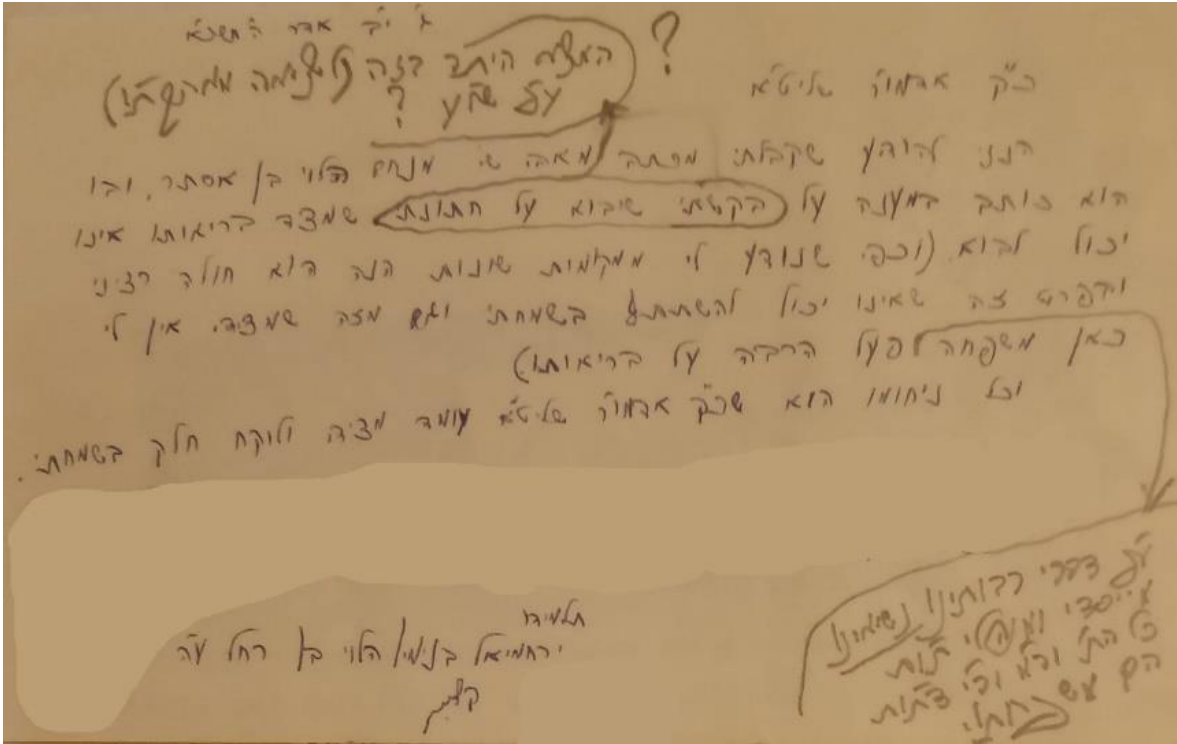 ג' י"ב אדר ה'תשכ"א
?
המצו' היתה בזה
על שו"ע ?
כ"ק אדמו"ר שליט"א
הנני להודיע שקבלתי מכתב מאבי שי' מנחם הלוי בן אסתר, ובו
הוא כותב במענה על בקשתי שיבוא על חתונתי שמצד בריאותו אינו
יכול לבוא (וכפי שנודע לי ממקומות שונות הנה הוא חולה רציני
ובפרט זה שאינו יכול להשתתף בשמחתי וגם מזה שמצידי אין לי
כאן משפחה פעל הרבה על בריאותו)
וכל ניחומו הוא שכ"ק אדמו"ר שליט"א עומד מצידי ולוקח חלק בשמחתי.
תלמידו
ירחמיאל בנימין הלוי בן רחל ע"ה
ע"פ דברי רבותינו נשיאינו
מייסדי ומנהלי תות"ל
כל הת'
הם משפחתו